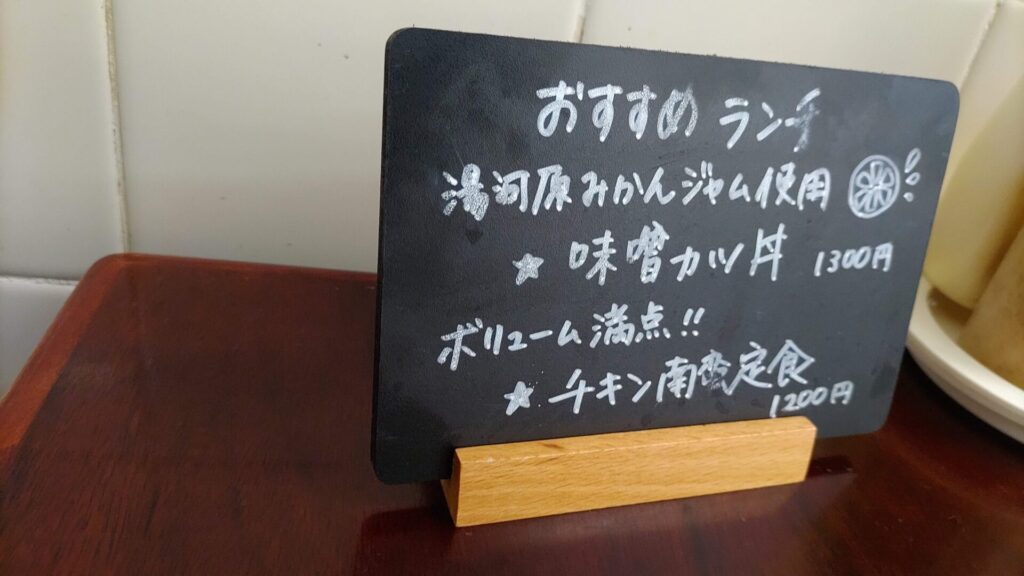 おすすめ ランチ
湯河原みかんジャム使用
★ 味噌カツ丼 1300円
ボリューム満点!!
★ チキン南蛮定食
1200円